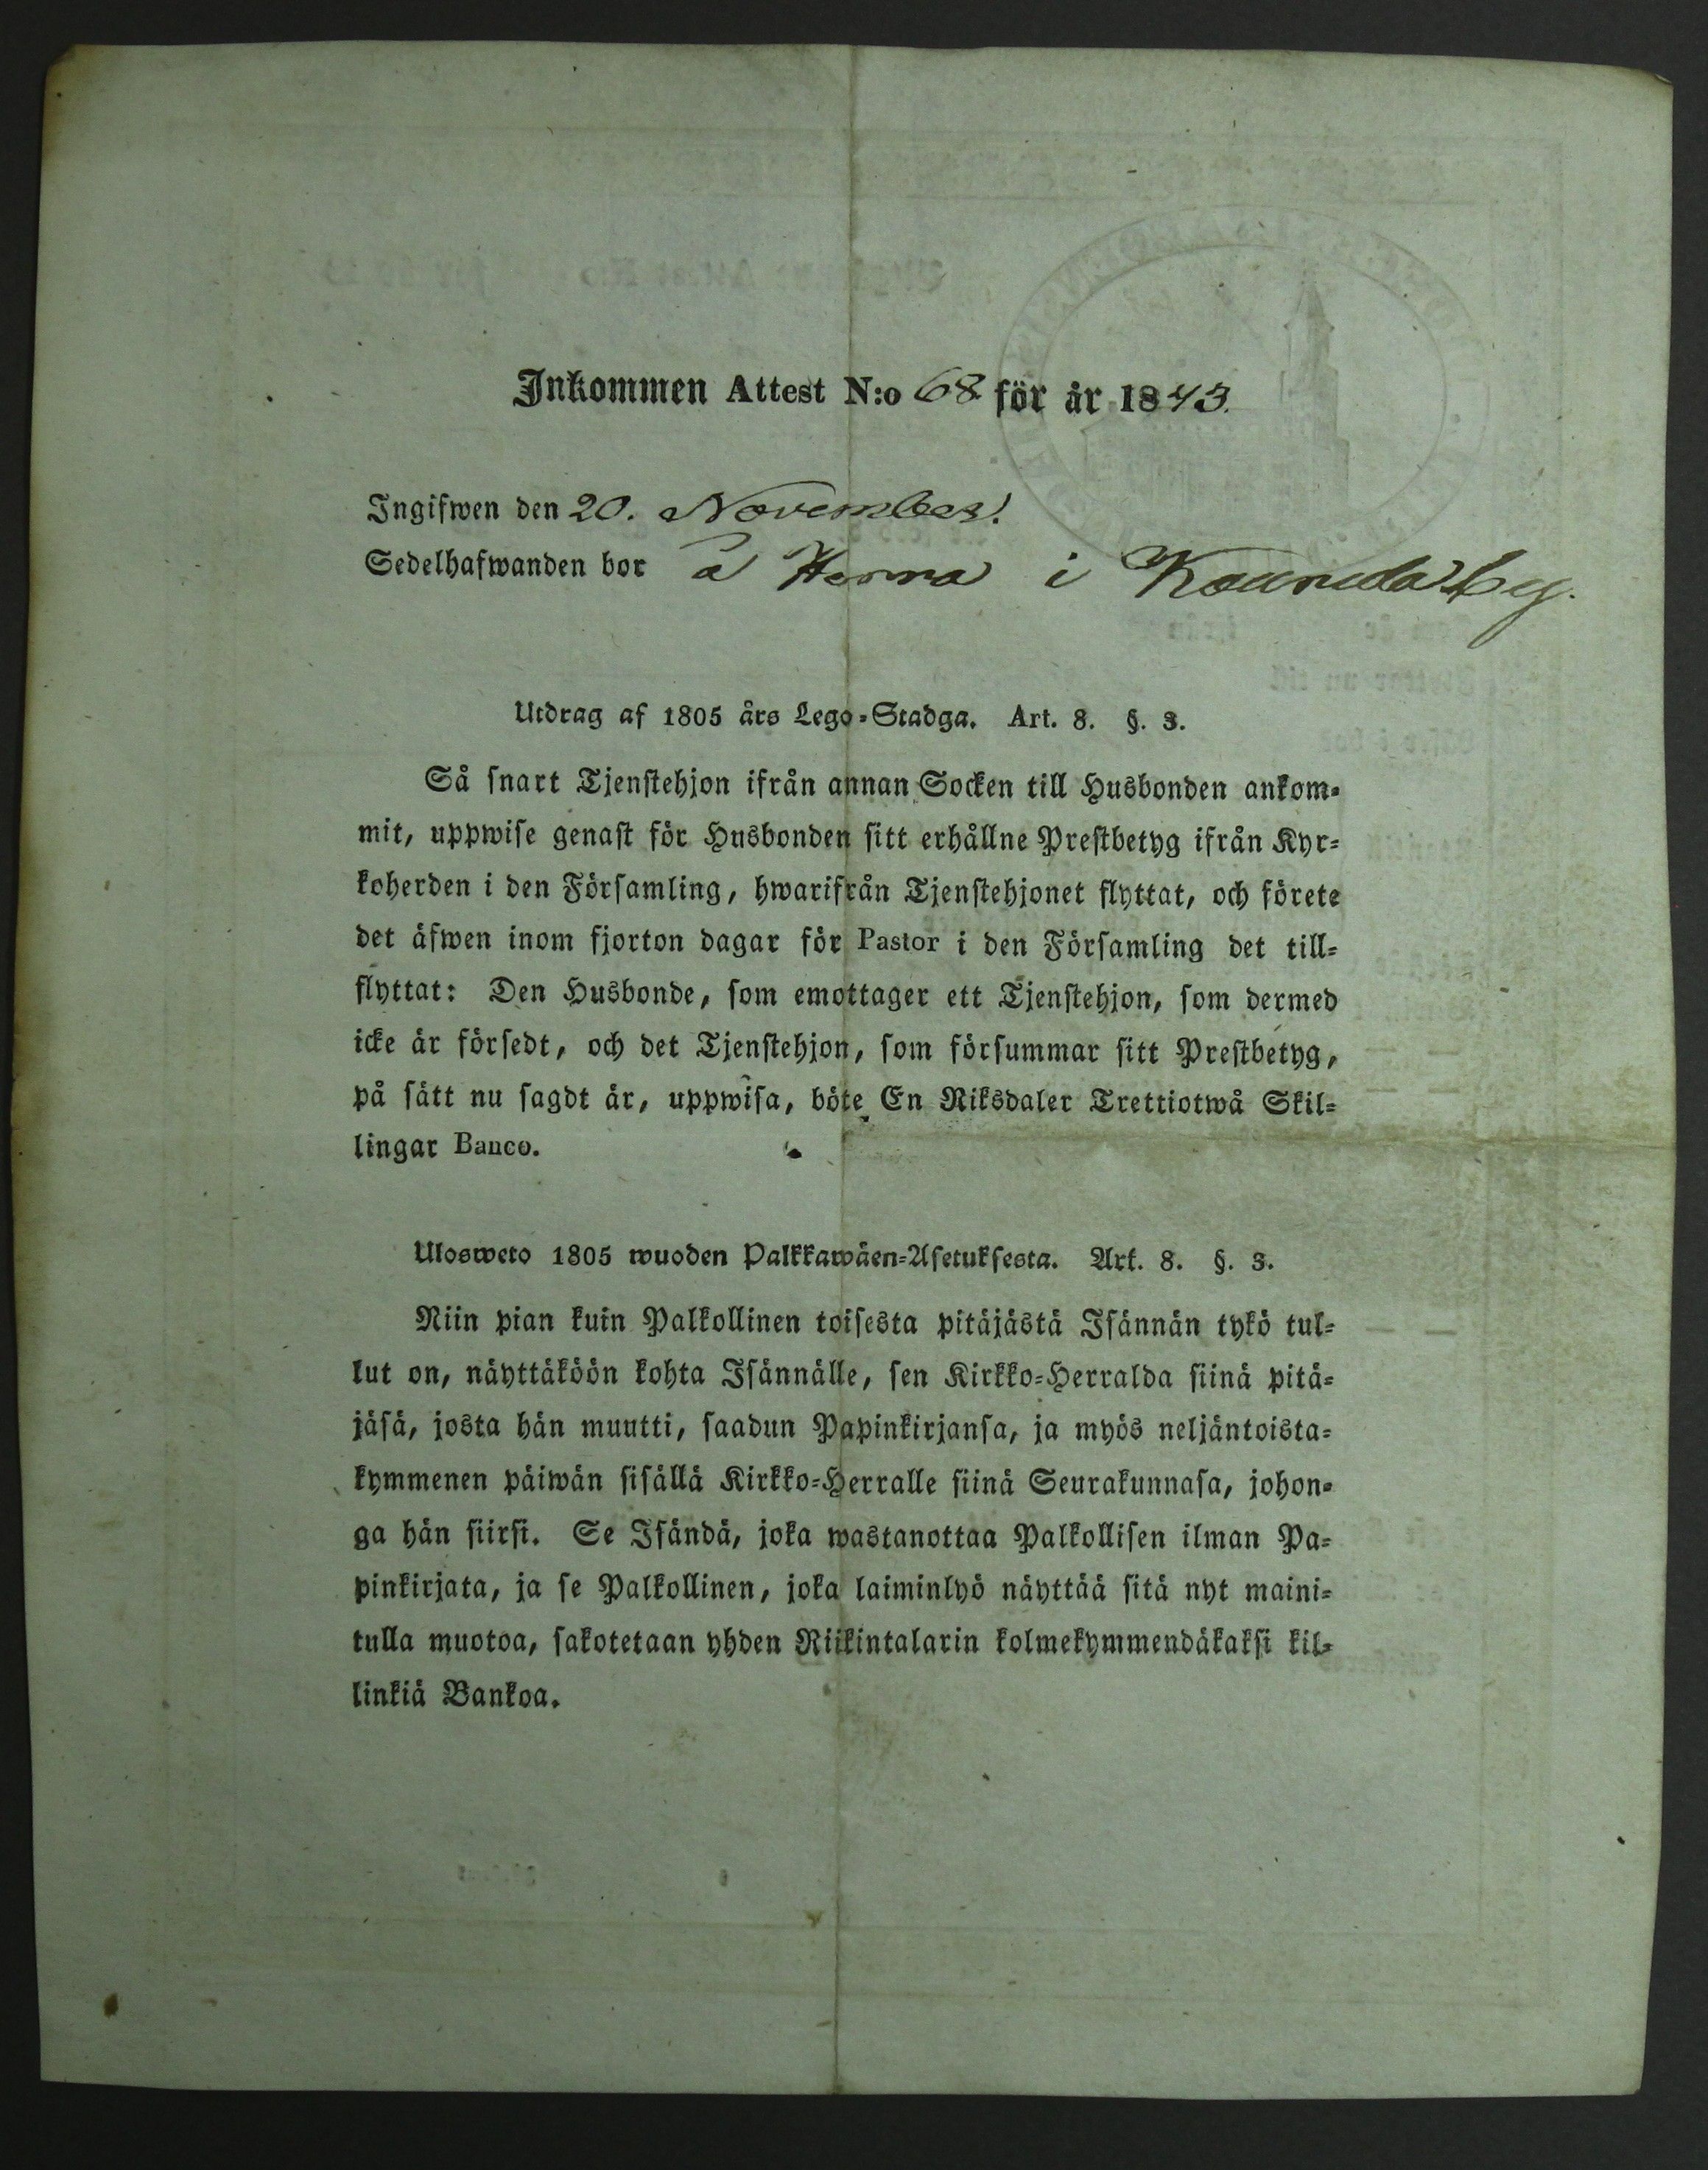 Inkommen Attest N:o 68 för år 1843.
Ingifwen den 20. November.
Sedelhafwanden bor å Herra i Kaunela by.
Utdrag af 1805 års Lego-Stadga. Art. 8. §. 3.
Så snart Tjenstehjon ifrån annan Socken till Husbonden ankom-
mit, uppwise genast för Husbonden sitt erhållne Prestbetyg ifrån Kyr-
koherden i den Församling, hwarifrån Tjenstehjonet flyttat, och förete
det äfwen inom fjorton dagar för Pastor i den Församling det till-
flyttat: Den Husbonde, som emottager ett Tjenstehjon, som dermed
icke är försedt, och det Tjenstehjon, som försummar sitt Prestbetyg,
på sätt nu sagdt är, uppwisa, böte En Riksdaler Trettiotwå Skil-
lingar Banco.
Ulosweto 1805 wuoden Palkkawäen-Asetuksesta. Art. 8. §. 3.
Niin pian kuin Palkollinen toisesta pitäjästä Isännän tykö tul-
lut on, näyttäköön kohta Isännälle, sen Kirkko-Herralda siinä pitä-
jäsä, josta hän muutti, saadun Papinkirjansa, ja myös neljäntoista-
kymmenen päiwän sisällä Kirkko-Herralle siinä Seurakunnasa, johon-
ga hän siirsi. Se Isändä, joka wastanottaa Palkollisen ilman Pa-
pinkirjata, ja se Palkollinen, joka laiminlyö näyttää sitä nyt maini-
tulla muotoa, sakotetaan yhden Riikintalarin kolmekymmendäkaksi kil-
linkiä Bankoa.